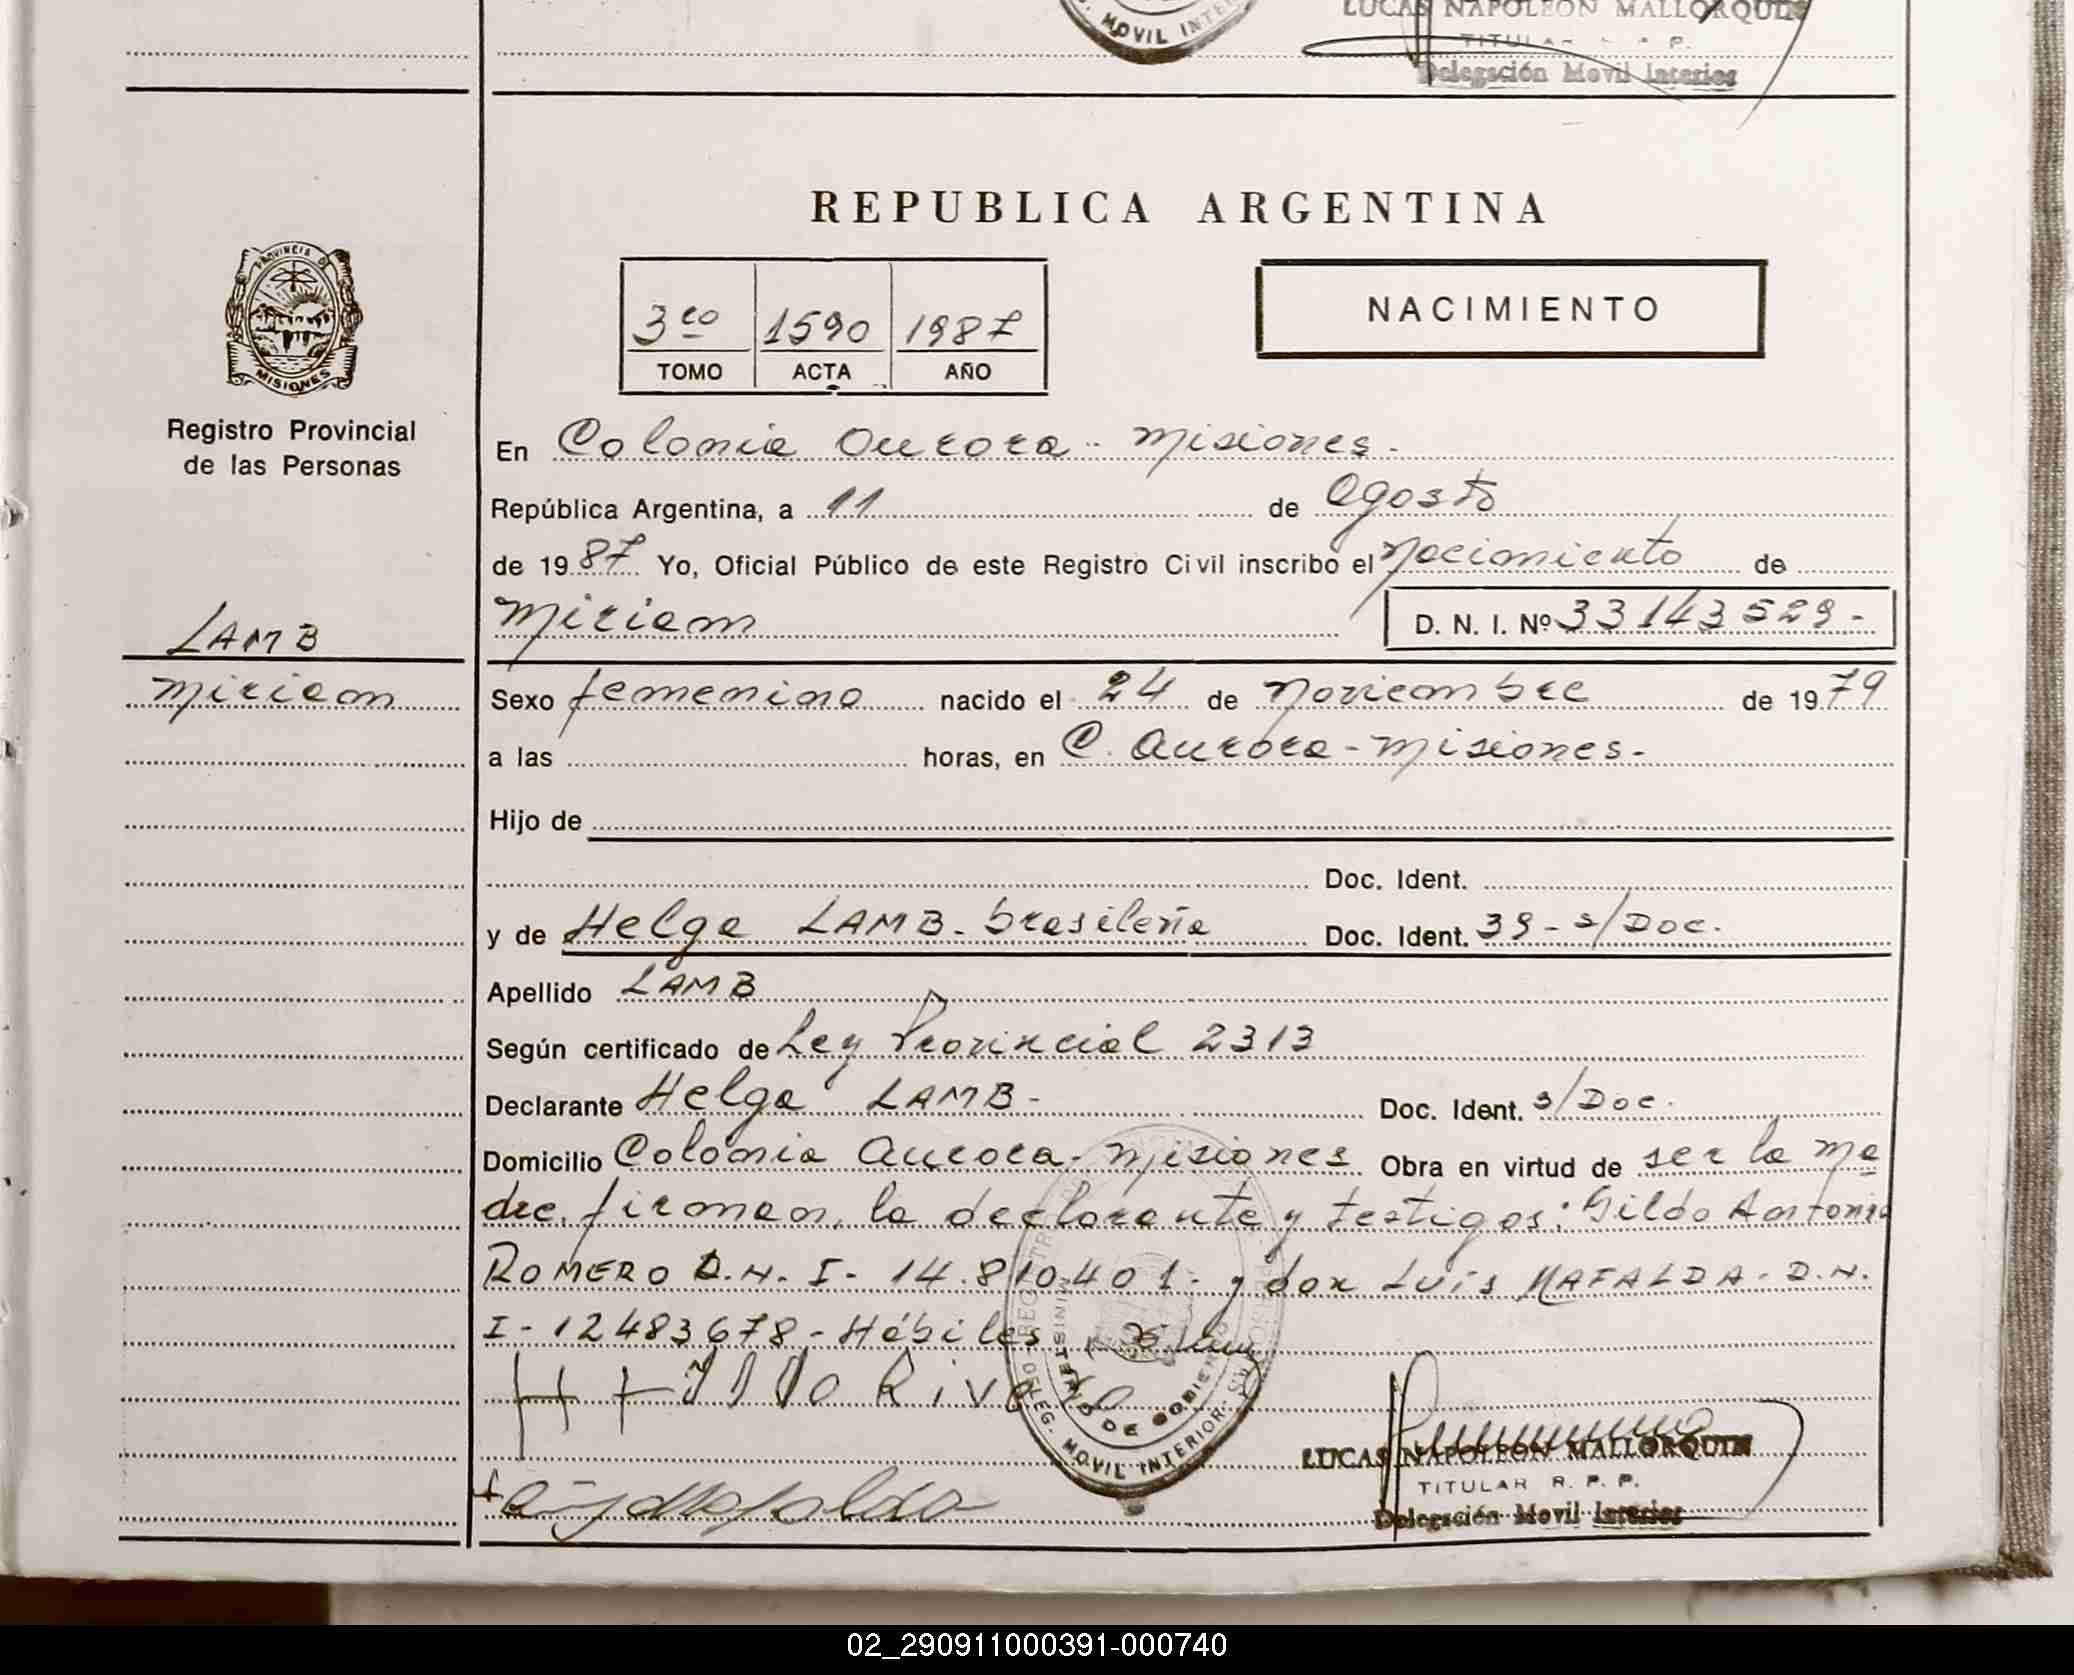 MOVIL INTER
LUCAS NAPOLEON MALLORQUIN
TITULAR R. P. P.
Delegación Movil Interior
REPUBLICA ARGENTINA
PROVINCIA DE
MISIONES
Registro Provincial
de las Personas
3ro 1590 1987
TOMO ACTA AÑO
NACIMIENTO
En Colonia Aurora - Misiones.
República Argentina, a 11 de Agosto
de 1987 Yo, Oficial Público de este Registro Civil inscribo el Nacimiento de
Miriam D. N. I. Nº 33143529-
LAMB
Miriam
Sexo femenino nacido el 24 de Noviembre de 1979
a las horas, en C. Aurora - Misiones-
Hijo de
Doc. Ident.
y de Helga LAMB- brasileña Doc. Ident. 39 - s/Doc.
Apellido LAMB
Según certificado de Ley Provincial 2313
Declarante Helga LAMB- Doc. Ident. s/Doc.
Domicilio Colonia Aurora- Misiones Obra en virtud de ser la ma
dre. firman, la declarante y testigos: Gildo Antonio
ROMERO D.N.I- 14.810.401- y don Luis MAFALDA- D.N.
I- 12483678- Hábiles
MINISTERIO DE GOBIERNO
DELEG. MOVIL INTERIOR
LUCAS NAPOLEON MALLORQUIN
TITULAR R. P. P.
Delegación Movil Interior
02_290911000391-000740